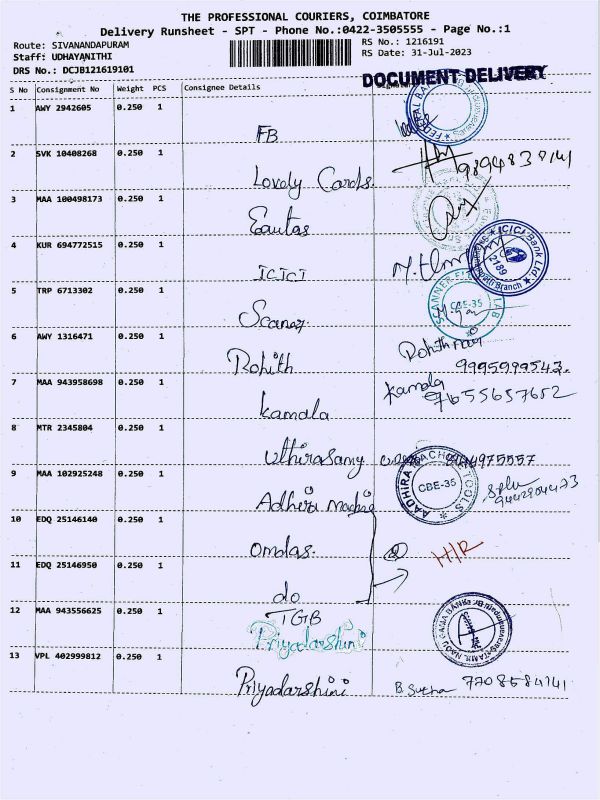 THE PROFESSIONAL COURIERS, COIMBATORE
Delivery Runsheet - SPT - Phone No.:0422-3505555 - Page No.:1
Route: SIVANANDAPURAM
RS No.: 1216191
Staff: UDHAYANITHI
RS Date: 31-Jul-2023
DRS No.: DCJB121619101
DOCUMENT DELIVERY
S No Consignment No Weight PCS Consignee Details
1 AWY 2942605 0.250 1
FB
2 SVK 10408268 0.250 1
Lovely Cards.
3 MAA 100498173 0.250 1
Eautas
4 KUR 694772515 0.250 1
ICICI
ICICI Bank Ltd.
Branch
5 TRP 6713302 0.250 1
SCANNER
LAB
CBE-35
6 AWY 1316471 0.250 1
Rohith
9995999543.
7 MAA 943958698 0.250 1
Kamala
Kamala
9655657652
8 MTR 2345804 0.250 1
Uthirasamy
9 MAA 102925248 0.250 1
Adhira
AADHIRA MACHO TOOLS
CBE-35
10 EDQ 25146140 0.250 1
Omdas.
H/R
11 EDQ 25146950 0.250 1
do
12 MAA 943556625 0.250 1
TGB
Priyadarshini
13 VPL 402999812 0.250 1
Priyadarshini
B. Sutha 7708584141